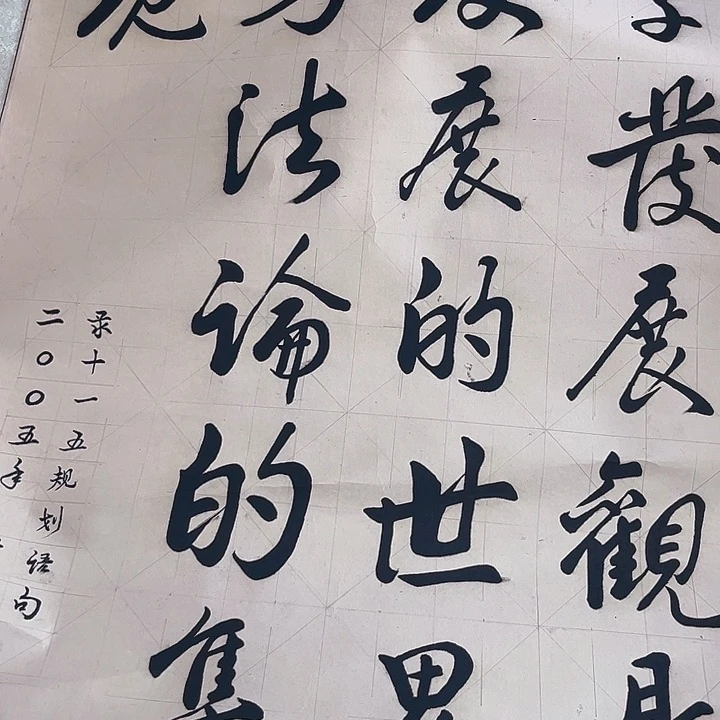 發展觀是
展的世界
法論的集
录十一五规划语句
二〇〇五年